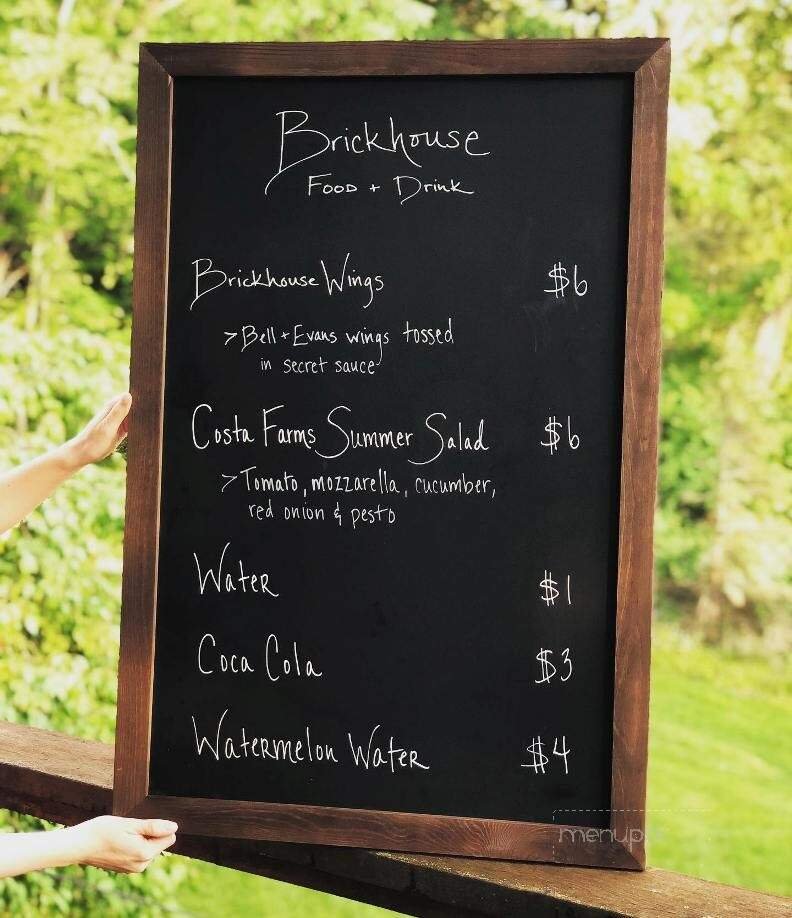 Brickhouse
Food + Drink
Brickhouse Wings $6
> Bell + Evans wings tossed
in secret sauce
Costa Farms Summer Salad $6
> Tomato, mozzarella, cucumber,
red onion & pesto
Water $1
Coca Cola $3
Watermelon Water $4
menupix